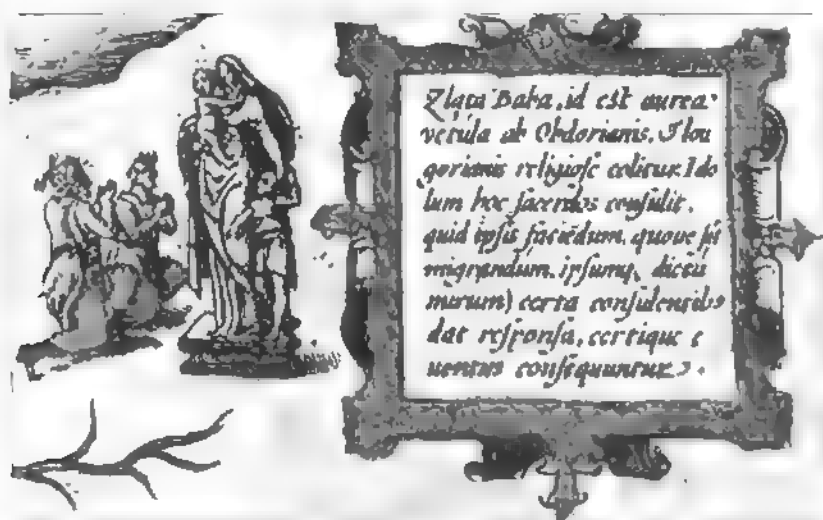 Zlata Baba, id est aurea
vetula ab Obdorianis, & Iou
gorianis religiose colitur. Ido
lum hoc sacerdos consulit,
quid ipsis faciẽdum, quove sit
migrandum, ipsumq, dictu
mirum) certa consulentib9
dat responsa, certique e
uentus consequuntur.